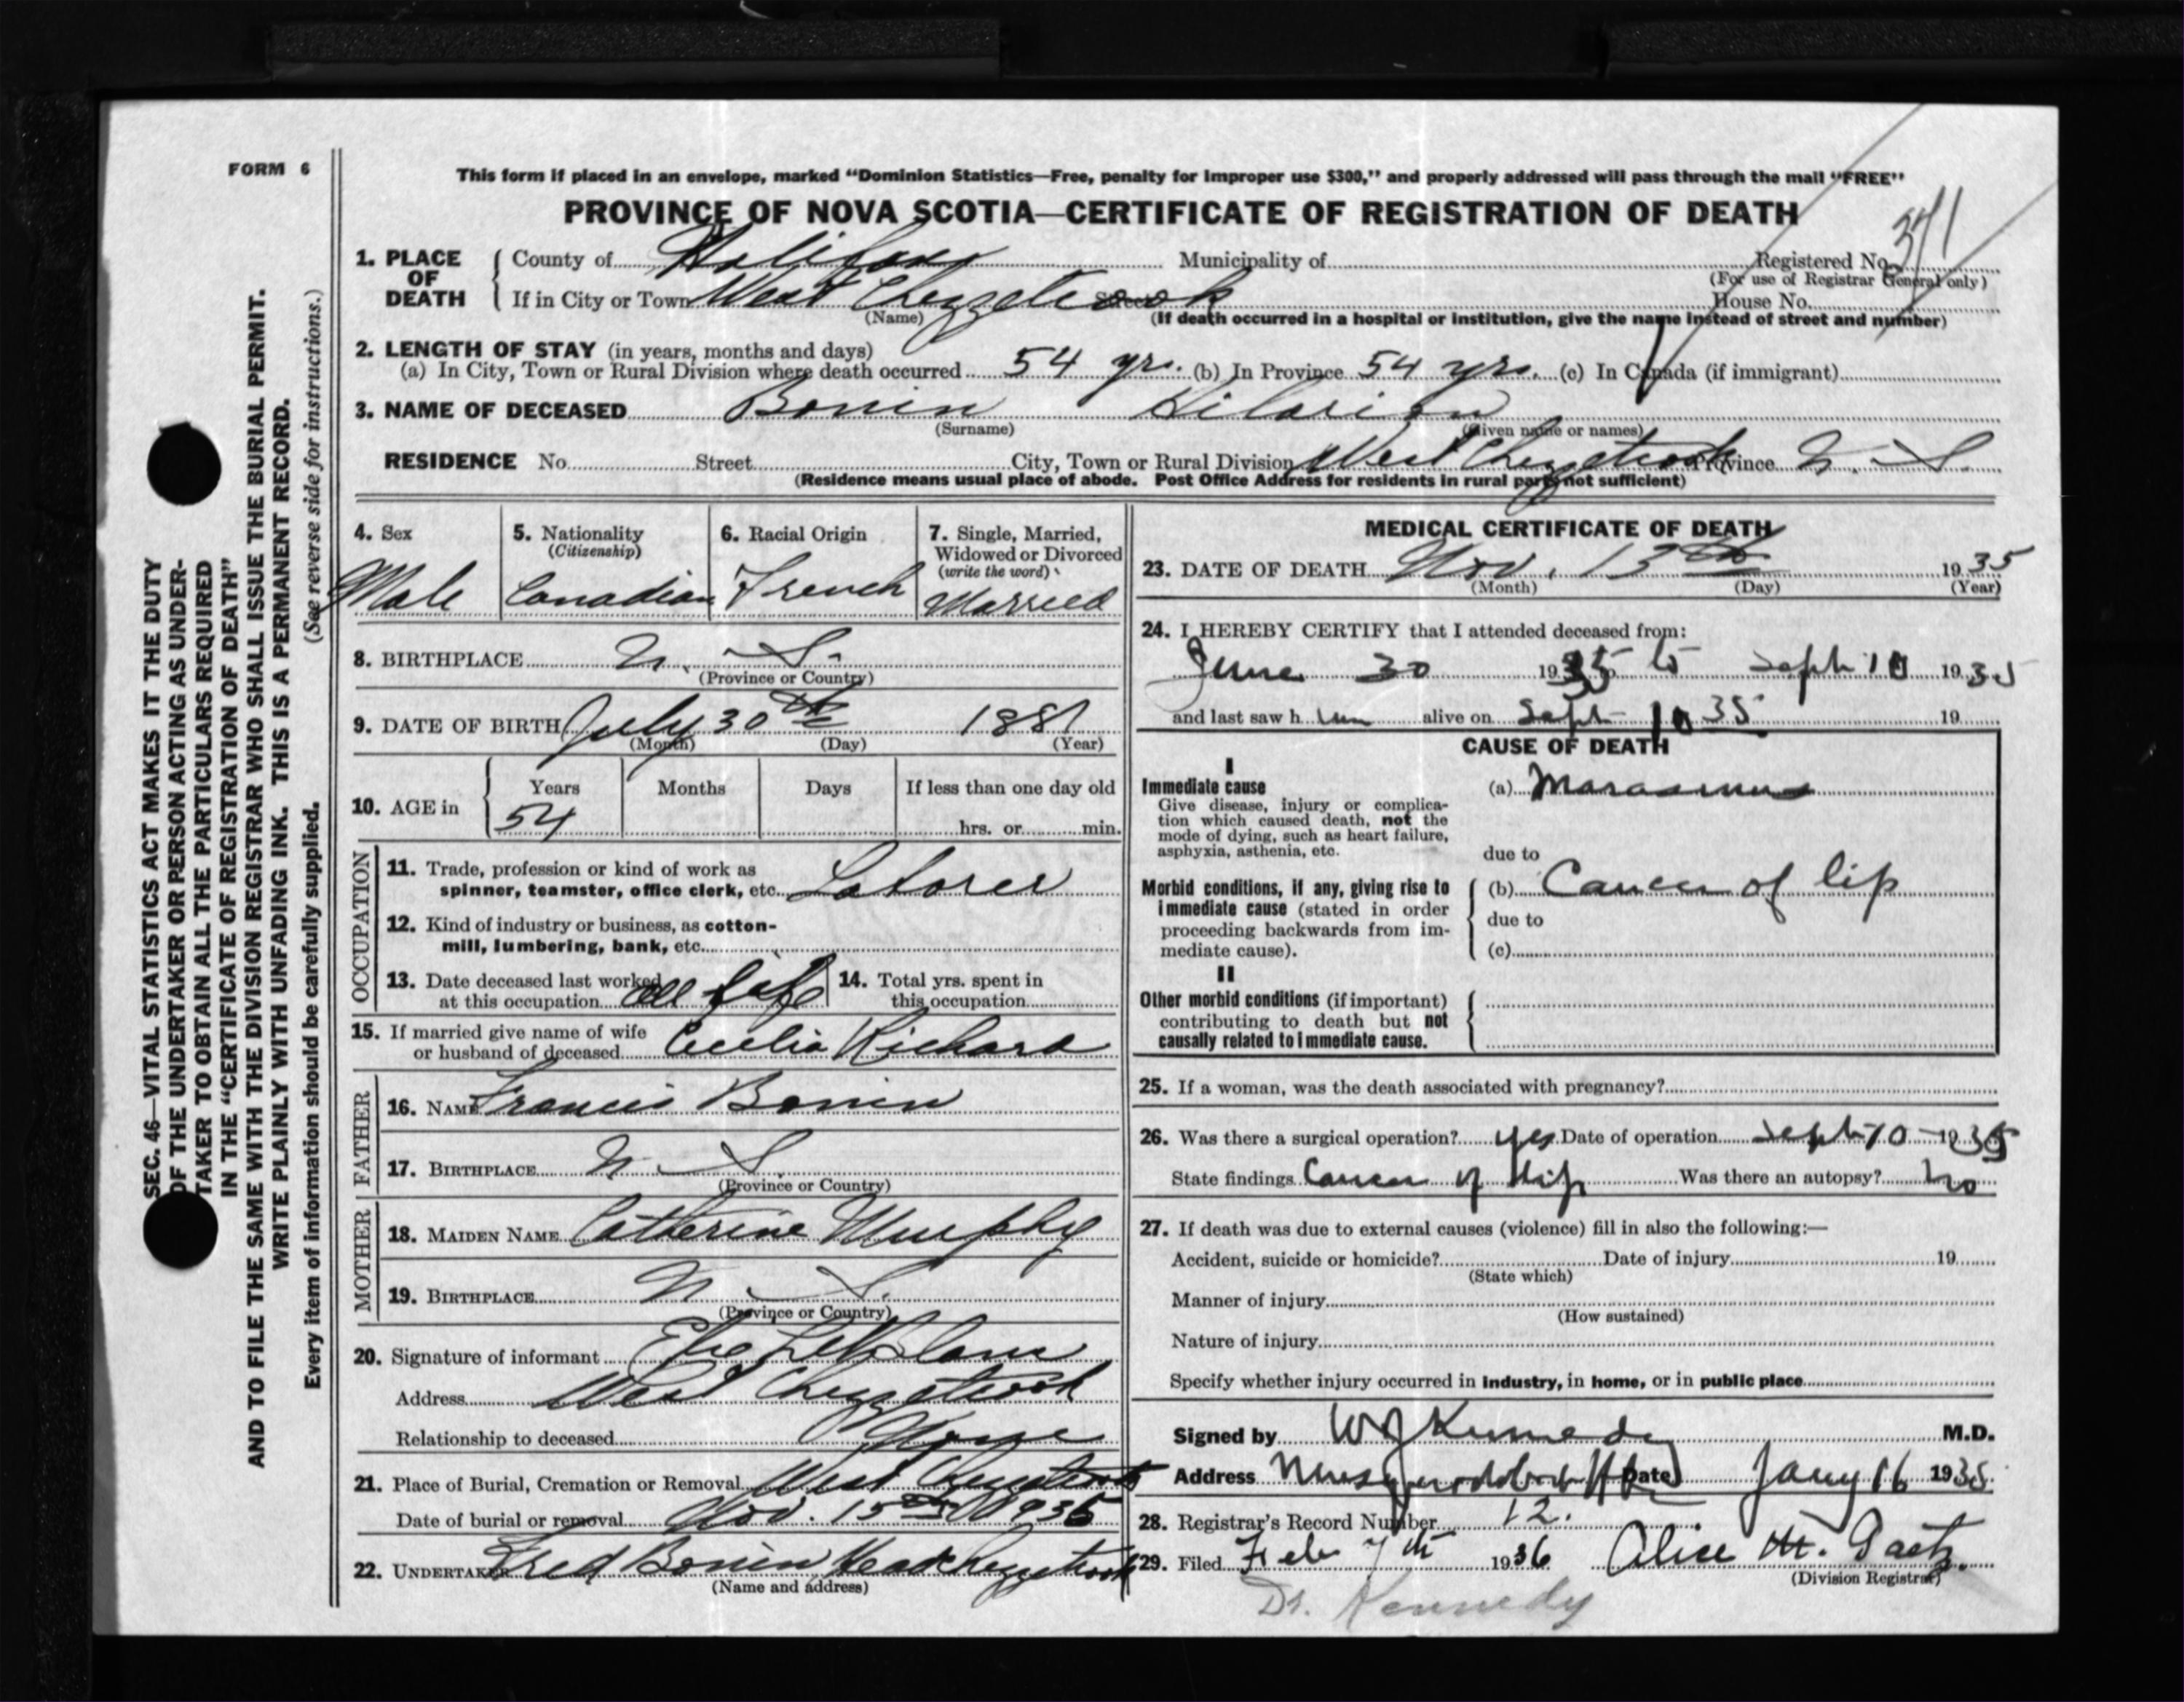 FORM 6
This form if placed in an envelope, marked “Dominion Statistics—Free, penalty for improper use $300,” and properly addressed will pass through the mail “FREE”
PROVINCE OF NOVA SCOTIA—CERTIFICATE OF REGISTRATION OF DEATH
1. PLACE OF DEATH { County of Halifax Municipality of Registered No. 371
(For use of Registrar General only)
If in City or Town West Chezzetcook Street House No.
(Name) (If death occurred in a hospital or institution, give the name instead of street and number)
2. LENGTH OF STAY (in years, months and days)
(a) In City, Town or Rural Division where death occurred 54 yrs. (b) In Province 54 yrs. (c) In Canada (if immigrant)
3. NAME OF DECEASED Bonin Hilarion
(Surname) (Given name or names)
RESIDENCE No. Street City, Town or Rural Division West Chezzetcook Province N. S.
(Residence means usual place of abode. Post Office Address for residents in rural parts not sufficient)
4. Sex Male
5. Nationality (Citizenship) Canadian
6. Racial Origin French
7. Single, Married, Widowed or Divorced (write the word) Married
8. BIRTHPLACE N. S.
(Province or Country)
9. DATE OF BIRTH July 30th 1881
(Month) (Day) (Year)
10. AGE in { Years Months Days If less than one day old
54 hrs. or min.
OCCUPATION
11. Trade, profession or kind of work as
spinner, teamster, office clerk, etc. Laborer
12. Kind of industry or business, as cotton-
mill, lumbering, bank, etc.
13. Date deceased last worked
at this occupation all life
14. Total yrs. spent in
this occupation
15. If married give name of wife
or husband of deceased Cecelia Richard
FATHER
16. NAME Francis Bonin
17. BIRTHPLACE N. S.
(Province or Country)
MOTHER
18. MAIDEN NAME Catherine Murphy
19. BIRTHPLACE N. S.
(Province or Country)
20. Signature of informant LeBlanc
Address West Chezzetcook
Relationship to deceased
21. Place of Burial, Cremation or Removal West Chezzetcook
Date of burial or removal Nov. 15 1935
22. UNDERTAKER Fred Bonin West Chezzetcook
(Name and address)
MEDICAL CERTIFICATE OF DEATH
23. DATE OF DEATH Nov. 13th 1935
(Month) (Day) (Year)
24. I HEREBY CERTIFY that I attended deceased from:
June 30 1935 to Sept 10 1935
and last saw him alive on Sept 10 35 19
CAUSE OF DEATH
I
Immediate cause (a) Marasmus
Give disease, injury or complica-
tion which caused death, not the
mode of dying, such as heart failure,
asphyxia, asthenia, etc.
due to
Morbid conditions, if any, giving rise to
immediate cause (stated in order
proceeding backwards from im-
mediate cause).
(b) Cancer of lip
due to
(c)
II
Other morbid conditions (if important)
contributing to death but not
causally related to immediate cause.
25. If a woman, was the death associated with pregnancy?
26. Was there a surgical operation? yes Date of operation Sept 10 1935
State findings Cancer of lip Was there an autopsy? No
27. If death was due to external causes (violence) fill in also the following:—
Accident, suicide or homicide? Date of injury 19
(State which)
Manner of injury
(How sustained)
Nature of injury
Specify whether injury occurred in industry, in home, or in public place
Signed by W J Kennedy M.D.
Address Musquodoboit Hbr Date Jany 16 1935
28. Registrar's Record Number 12.
29. Filed Feb 7th 1936 Alice M. Gaetz.
(Division Registrar)
Dr. Kennedy
SEC. 46—VITAL STATISTICS ACT MAKES IT THE DUTY
OF THE UNDERTAKER OR PERSON ACTING AS UNDER-
TAKER TO OBTAIN ALL THE PARTICULARS REQUIRED
IN THE “CERTIFICATE OF REGISTRATION OF DEATH”
AND TO FILE THE SAME WITH THE DIVISION REGISTRAR WHO SHALL ISSUE THE BURIAL PERMIT.
WRITE PLAINLY WITH UNFADING INK. THIS IS A PERMANENT RECORD.
Every item of information should be carefully supplied. (See reverse side for instructions.)